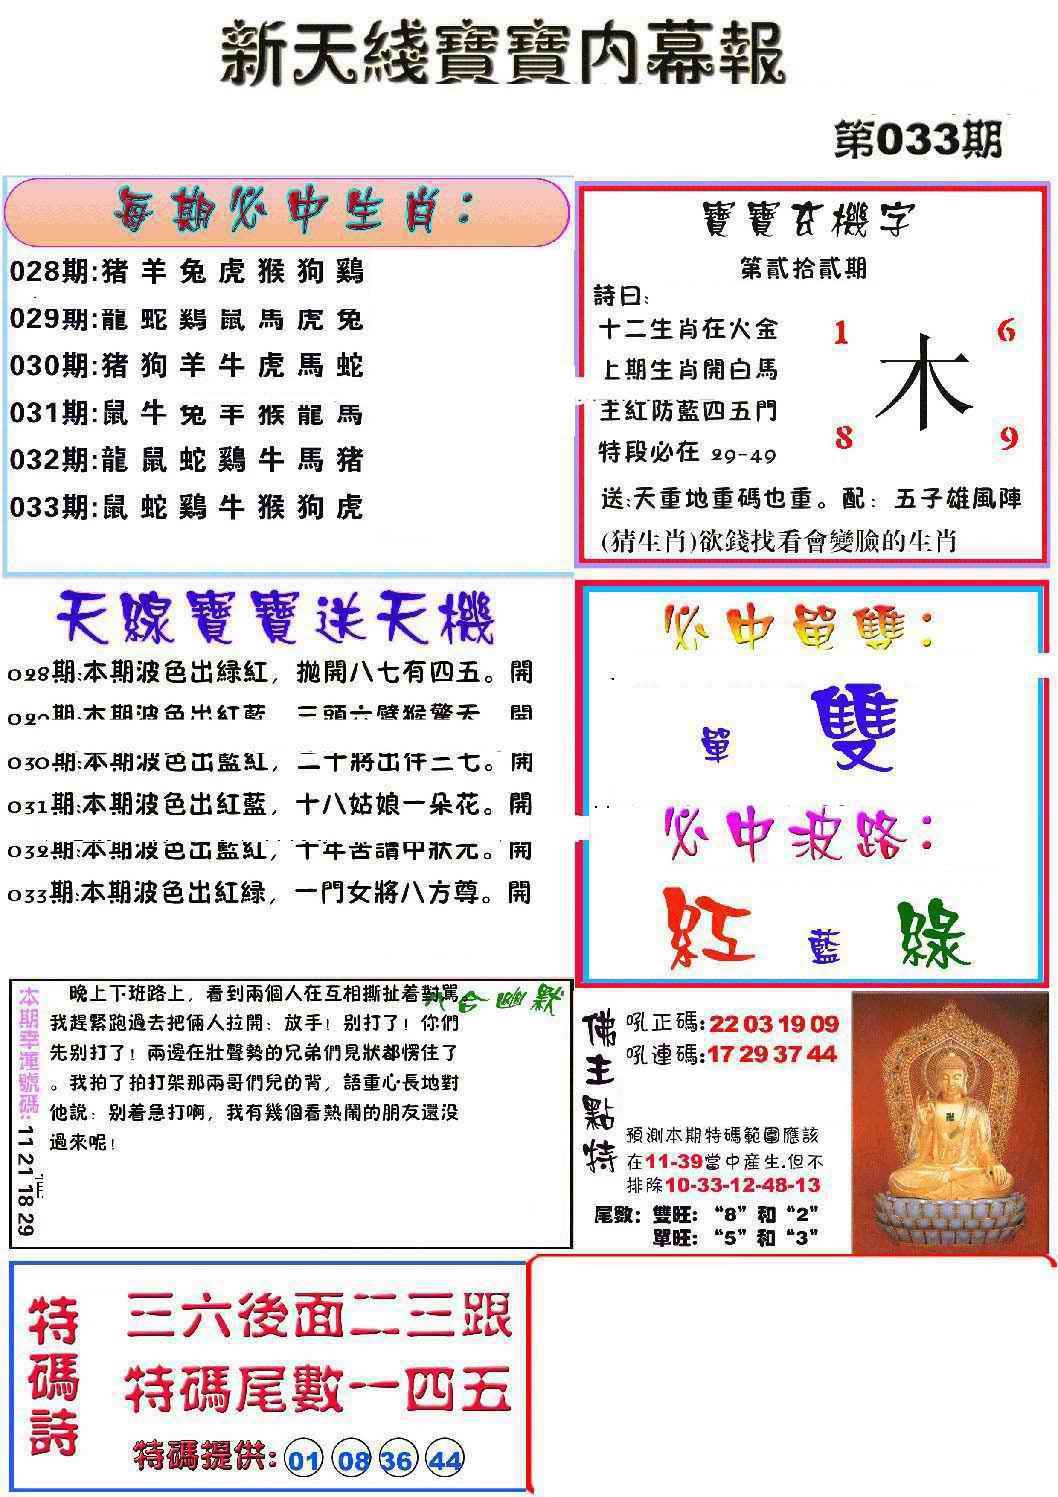 新天綫寶寶内幕報
第033期
每期必中生肖：
028期:猪 羊 兔 虎 猴 狗 鷄
029期:龍 蛇 鷄 鼠 馬 虎 兔
030期:猪 狗 羊 牛 虎 馬 蛇
031期:鼠 牛 兔 羊 猴 龍 馬
032期:龍 鼠 蛇 鷄 牛 馬 猪
033期:鼠 蛇 鷄 牛 猴 狗 虎
寶寶玄機字
第貳拾貳期
詩曰:
十二生肖在火金
上期生肖開白馬
主紅防藍四五門
特段必在 29-49
1 6
木
8 9
送:天重地重碼也重。配：五子雄風陣
(猜生肖)欲錢找看會變臉的生肖
天線寶寶送天機
028期:本期波色出緑紅，拋開八七有四五。開
029期:本期波色出紅藍，三頭六臂猴驚天。開
030期:本期波色出藍紅，二十將出仟三七。開
031期:本期波色出紅藍，十八姑娘一朵花。開
032期:本期波色出藍紅，十年苦讀中狀元。開
033期:本期波色出紅緑，一門女將八方尊。開
必中單雙：
單 雙
必中波路：
紅 藍 綠
六合幽默
晚上下班路上，看到兩個人在互相撕扯着對駡。
我趕緊跑過去把倆人拉開：放手！别打了！你們
先别打了！兩邊在壯聲勢的兄弟們見狀都愣住了
。我拍了拍打架那兩哥們兒的背，語重心長地對
他説：别着急打啊，我有幾個看熱鬧的朋友還没
過來呢！
本期幸運號碼：11 21 18 29
佛主點特
吼正碼:22 03 19 09
吼連碼:17 29 37 44
預測本期特碼範圍應該
在11-39當中産生.但不
排除10-33-12-48-13
尾數：雙旺：“8”和“2”
單旺：“5”和“3”
特碼詩
三六後面二三跟
特碼尾數一四五
特碼提供: 01 08 36 44